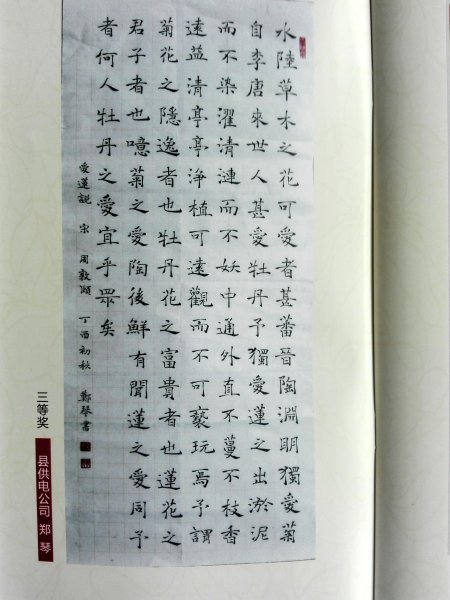 水陸草木之花可愛者甚蕃晉陶淵明獨愛菊
自李唐來世人甚愛牡丹予獨愛蓮之出淤泥
而不染濯清漣而不妖中通外直不蔓不枝香
遠益清亭亭淨植可遠觀而不可褻玩焉予謂
菊花之隱逸者也牡丹花之富貴者也蓮花之
君子者也噫菊之愛陶後鮮有聞蓮之愛同予
者何人牡丹之愛宜乎眾矣
愛蓮說 宋 周敦頤 丁酉初秋 鄭琴書
三等奖
县供电公司 郑琴